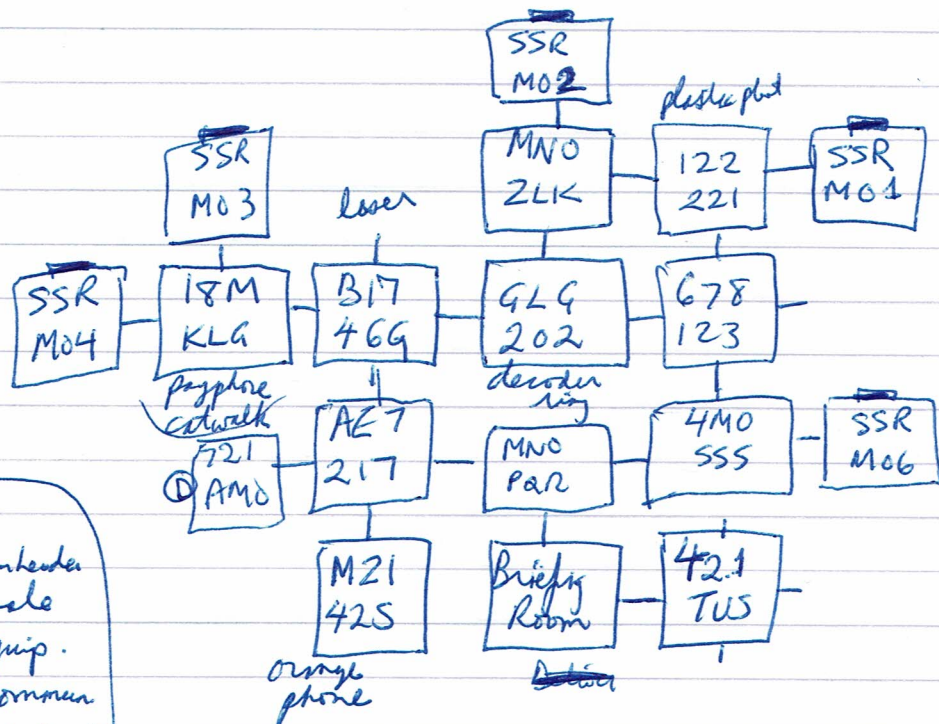 SSR
M02
plastic plant
SSR
M03
laser
MNO
ZLK
122
221
SSR
M01
SSR
M04
18M
KLG
B17
46G
GLG
202
678
123
payphone
catwalk
decoder
ring
721
D AMO
AE7
217
MNO
PQR
4MO
SSS
SSR
M06
M21
42S
Briefing
Room
42.1
TUS
orange
phone